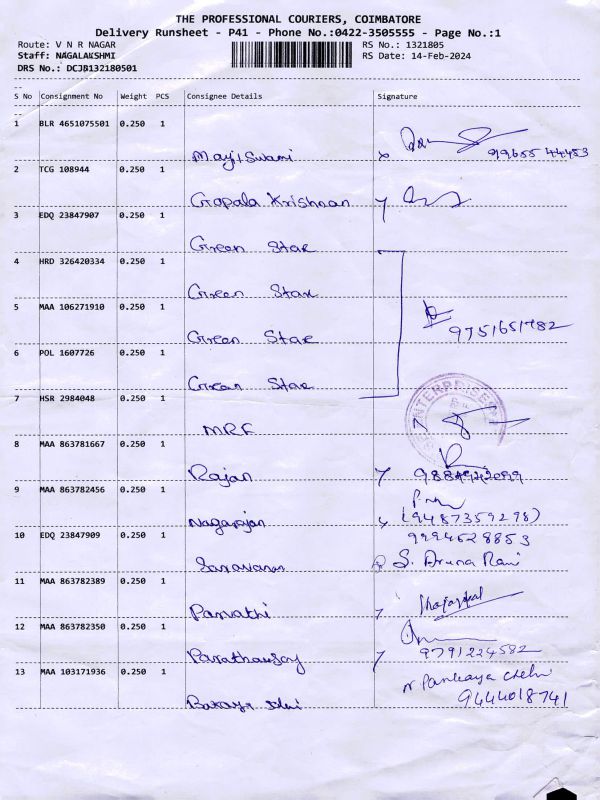 THE PROFESSIONAL COURIERS, COIMBATORE
Delivery Runsheet - P41 - Phone No.:0422-3505555 - Page No.:1
Route: V N R NAGAR RS No.: 1321805
Staff: NAGALAKSHMI RS Date: 14-Feb-2024
DRS No.: DCJB132180501
S No Consignment No Weight PCS Consignee Details Signature
1 BLR 4651075501 0.250 1
99655 44453
2 TCG 108944 0.250 1
Gopala Krishnan
3 EDQ 23847907 0.250 1
Green Star
4 HRD 326420334 0.250 1
Green Star
5 MAA 106271910 0.250 1
9751651782
Green Star
6 POL 1607726 0.250 1
Green Star
7 HSR 2984048 0.250 1
ENTERPRISES
MRF
8 MAA 863781667 0.250 1
Rajan
9 MAA 863782456 0.250 1
Nagarajan (9487359298)
10 EDQ 23847909 0.250 1 9994628853
Saravanan S. Aruna Rani
11 MAA 863782389 0.250 1
Parvathi
12 MAA 863782350 0.250 1
9791224582
13 MAA 103171936 0.250 1
9444018741